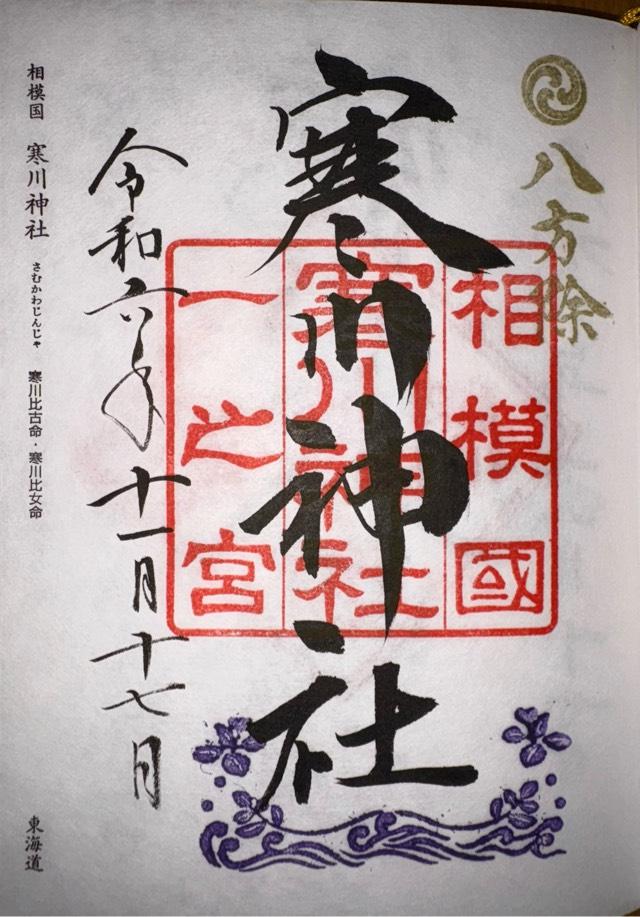 八方除
寒川神社
相模國
寒川神社
一之宮
令和六年十一月十七日
相模国 寒川神社 さむかわじんじゃ 寒川比古命・寒川比女命
東海道